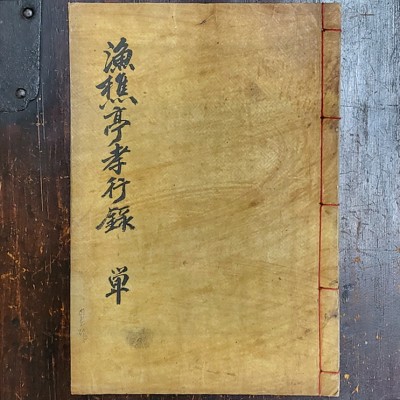 漁樵亭孝行錄 単